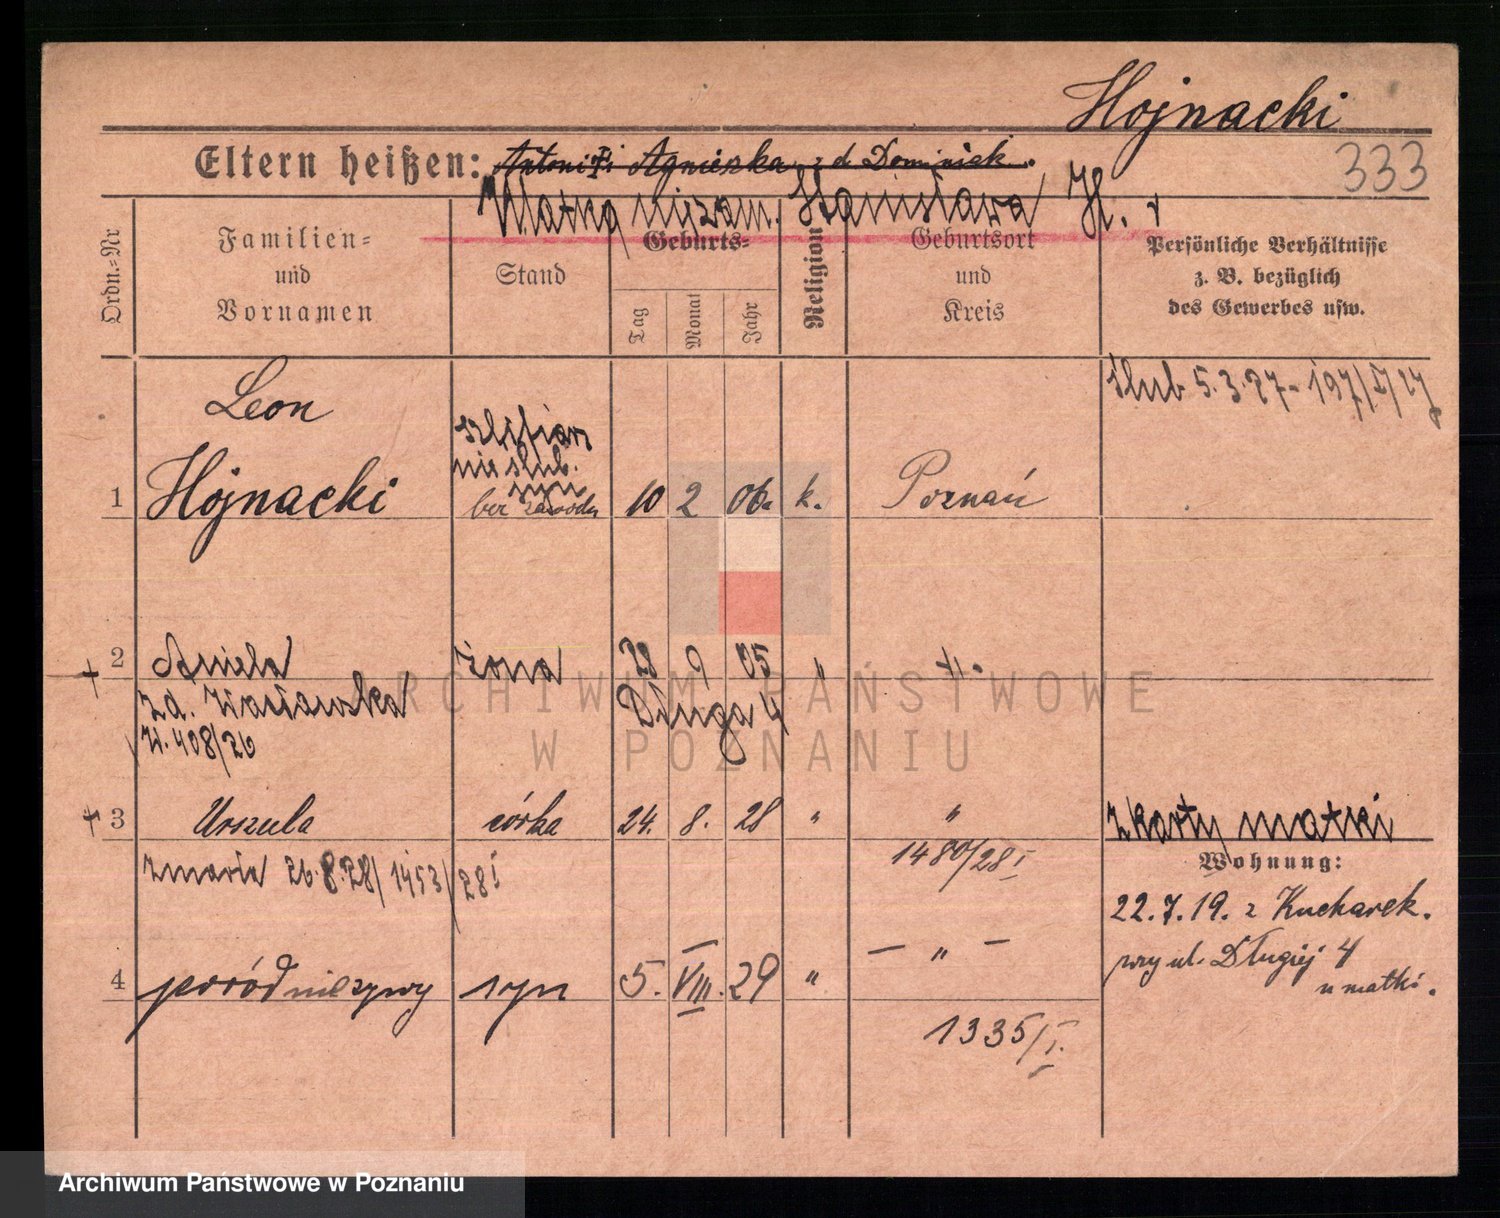 Hojnacki
333
Eltern heißen: Antoni i Agnieszka z d. Dominiak.
Matka niezam. Stanisława H.
Ordn.=Nr
Familien=
und
Vornamen
Stand
Geburts=
Tag
Monat
Jahr
Religion
Geburtsort
und
Kreis
Persönliche Verhältnisse
z. B. bezüglich
des Gewerbes usw.
ślub 5.3.27 - 197/I/27
Leon
szlifiarz
nieślub.
syn
1 Hojnacki bez zawodu 10 2 06. k. Poznań
2 Aniela żona 28 9 05 " H.
zd. Wacławska Długa 4
H. 408/26
3 Urszula córka 24. 8. 28 " "
z karty matki
Wohnung:
zmarła 26.8.28/1453/28 I
1480/28 I
22.7.19. z Kucharek.
przy ul. Długiej 4
u matki.
4 poród nieżywy syn 5. VIII. 29 " — " —
1335/I.
ARCHIWUM PAŃSTWOWE
W POZNANIU
Archiwum Państwowe w Poznaniu